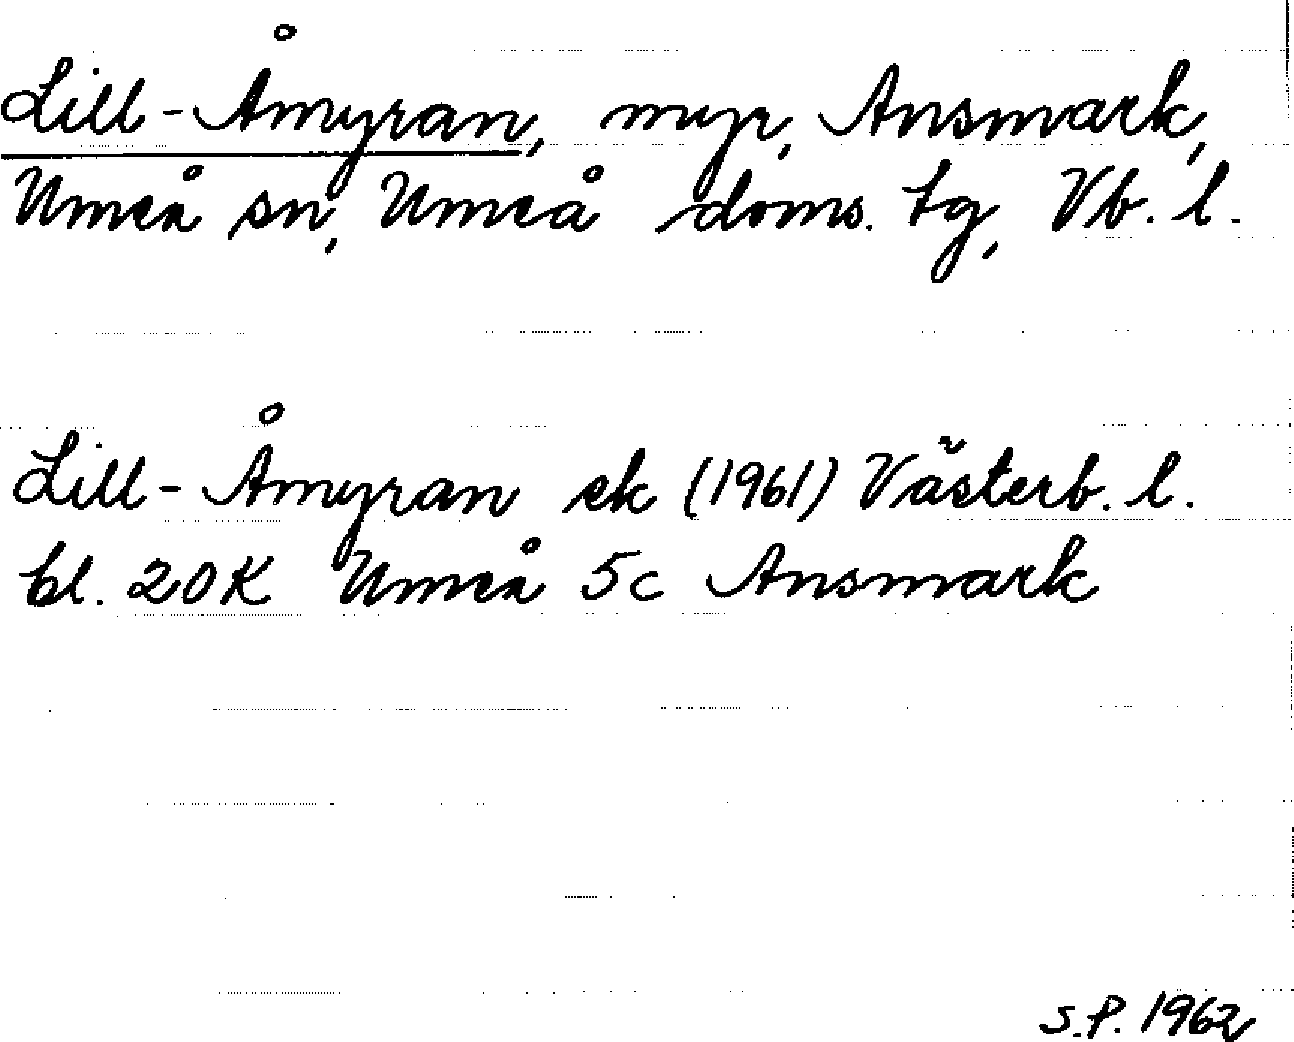 Lill-Åmyran, myr, Ansmark,
Umeå sn, Umeå doms. tg, Vb. l.
Lill-Åmyran ek (1961) Västerb. l.
bl. 20K Umeå 5c Ansmark
S.P. 1962